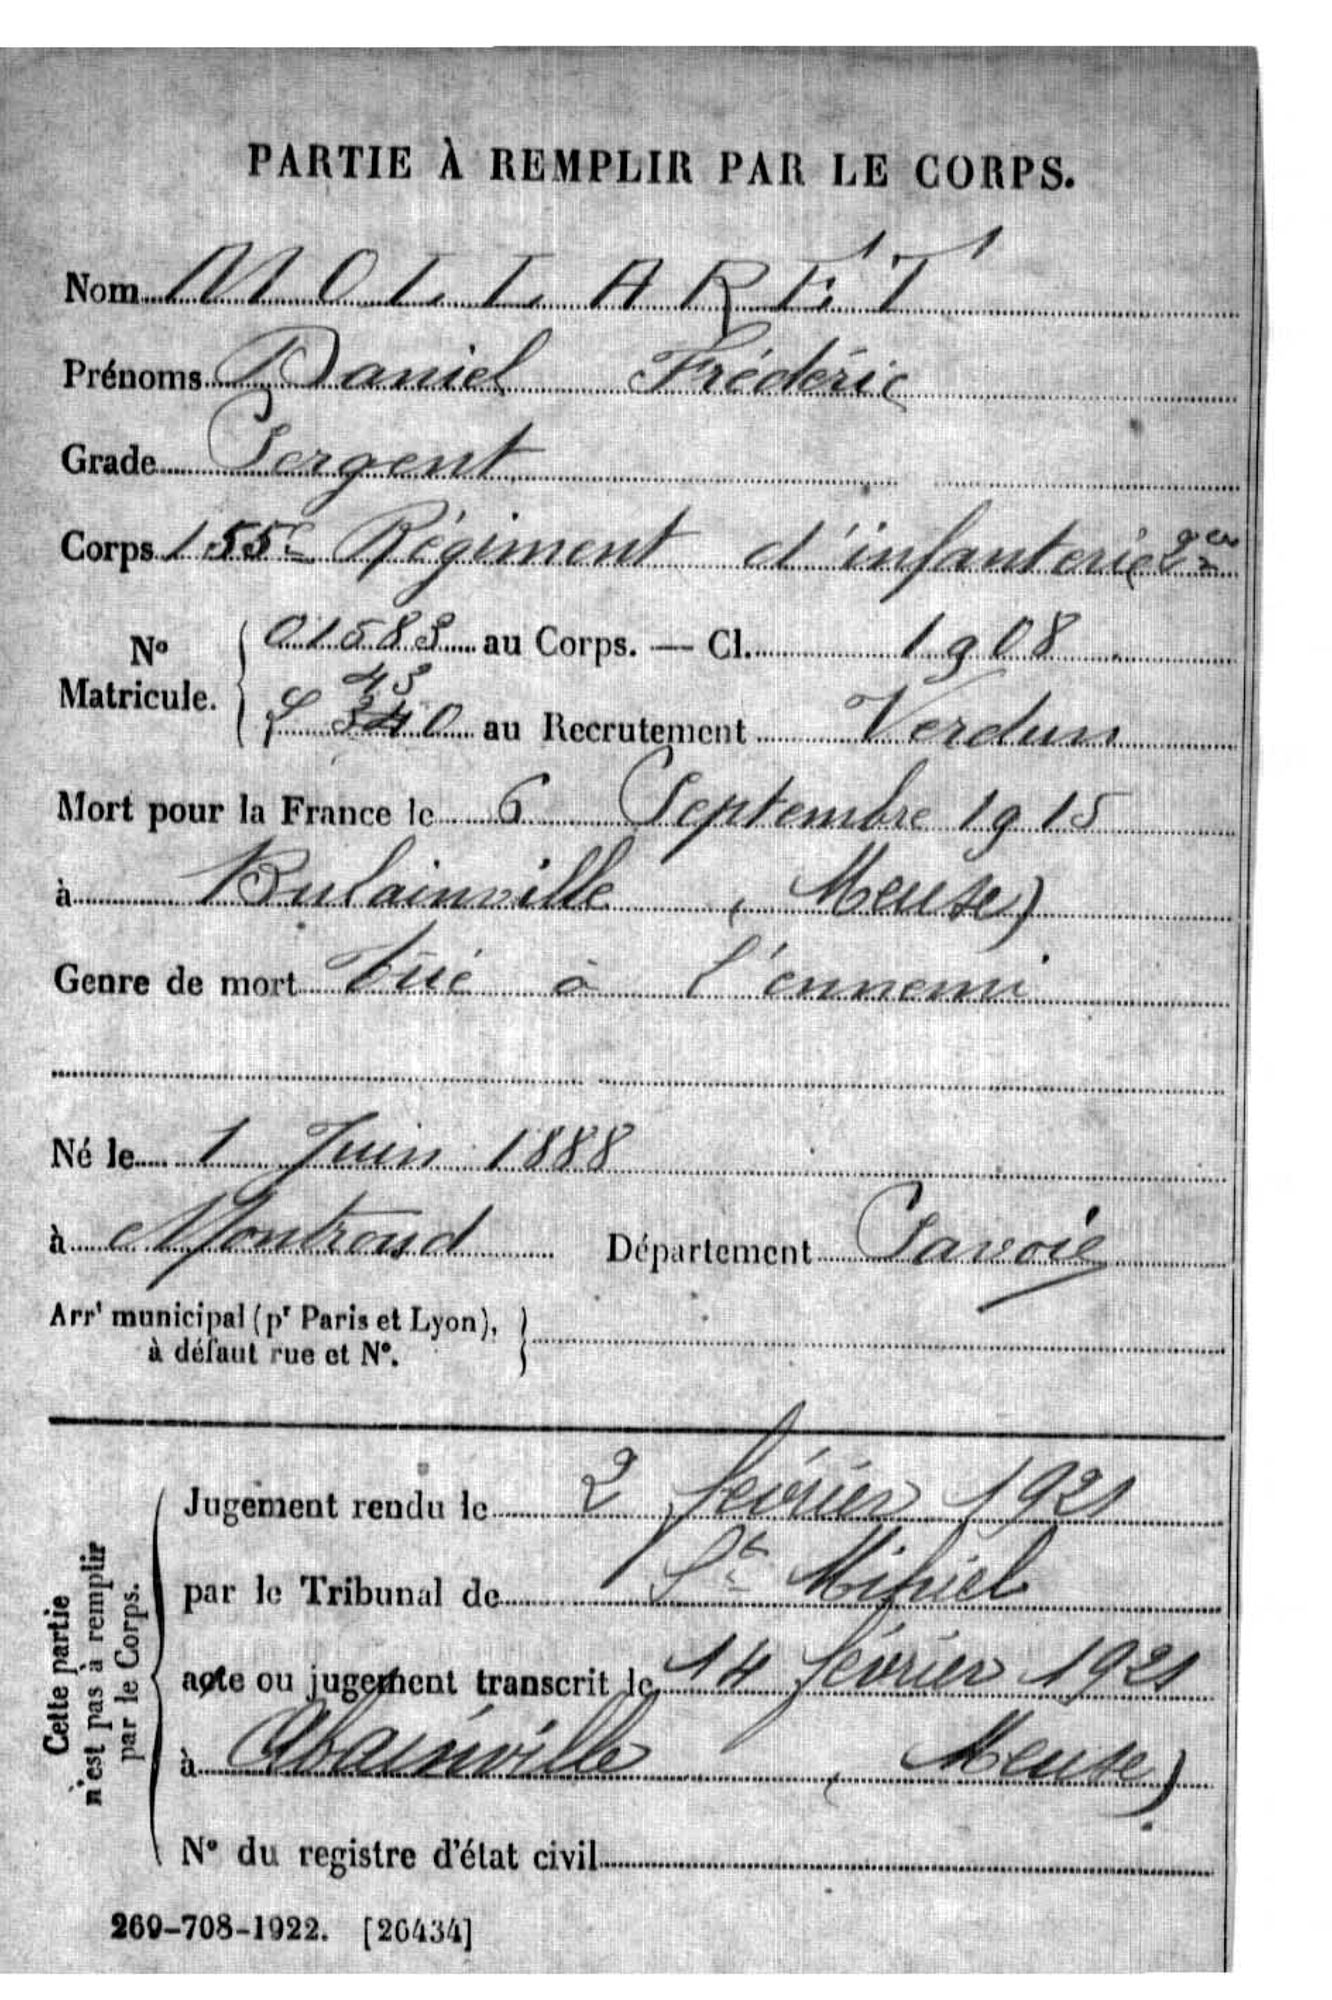 PARTIE À REMPLIR PAR LE CORPS.
Nom MOLLARET
Prénoms Daniel Frédéric
Grade Sergent
Corps 155e Régiment d'infanterie
No Matricule. 01583 au Corps. — Cl. 1908
43
340 au Recrutement Verdun
Mort pour la France le 6 Septembre 1915
à Bulainville (Meuse)
Genre de mort tué à l'ennemi
Né le 1 Juin 1888
à Montrond Département Savoie
Arrt municipal (pr Paris et Lyon),
à défaut rue et No.
Cette partie
n'est pas à remplir
par le Corps.
Jugement rendu le 2 février 1921
par le Tribunal de St Mihiel
acte ou jugement transcrit le 14 février 1921
à Abainville (Meuse)
No du registre d'état civil
269-708-1922. [26434]